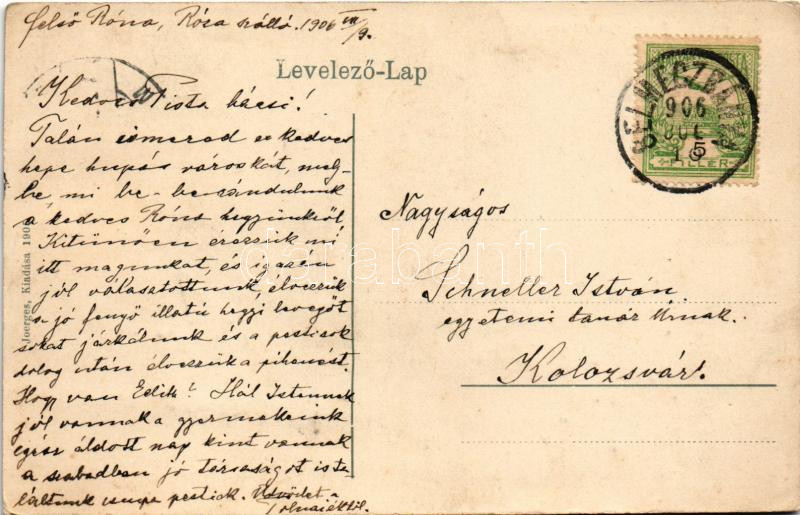 felső Róna, Róza szálló. 1906 VII/9.
Levelező-Lap
Kedves Pista bácsi!
Talán ismered ezt a kedves
hepe hupás városkát, mely-
be mi be-be rándulunk
a kedves Róna hegyünkről
Kitünően érezzük mi
itt magunkat, és igazán
jól választottunk, élvezzük
a jó fenyő illatú hegyi levegőt
sokat járkálunk és a pestiek
dolog után élvezzük a pihenést.
Hogy van Edith? Hál Istennek
jól vannak a gyermekeink
egész áldott nap kint vannak
a szabadban jó társaságot is ta-
láltunk csupa pestiek. Üdvözlet a
Tolnaiéktól.
Joerges, Kiadása 190
SELMECZBÁNYA
906
JUL
FILLER
5
Nagyságos
Schneller István
egyetemi tanár Urnak.
Kolozsvár!
darabanth